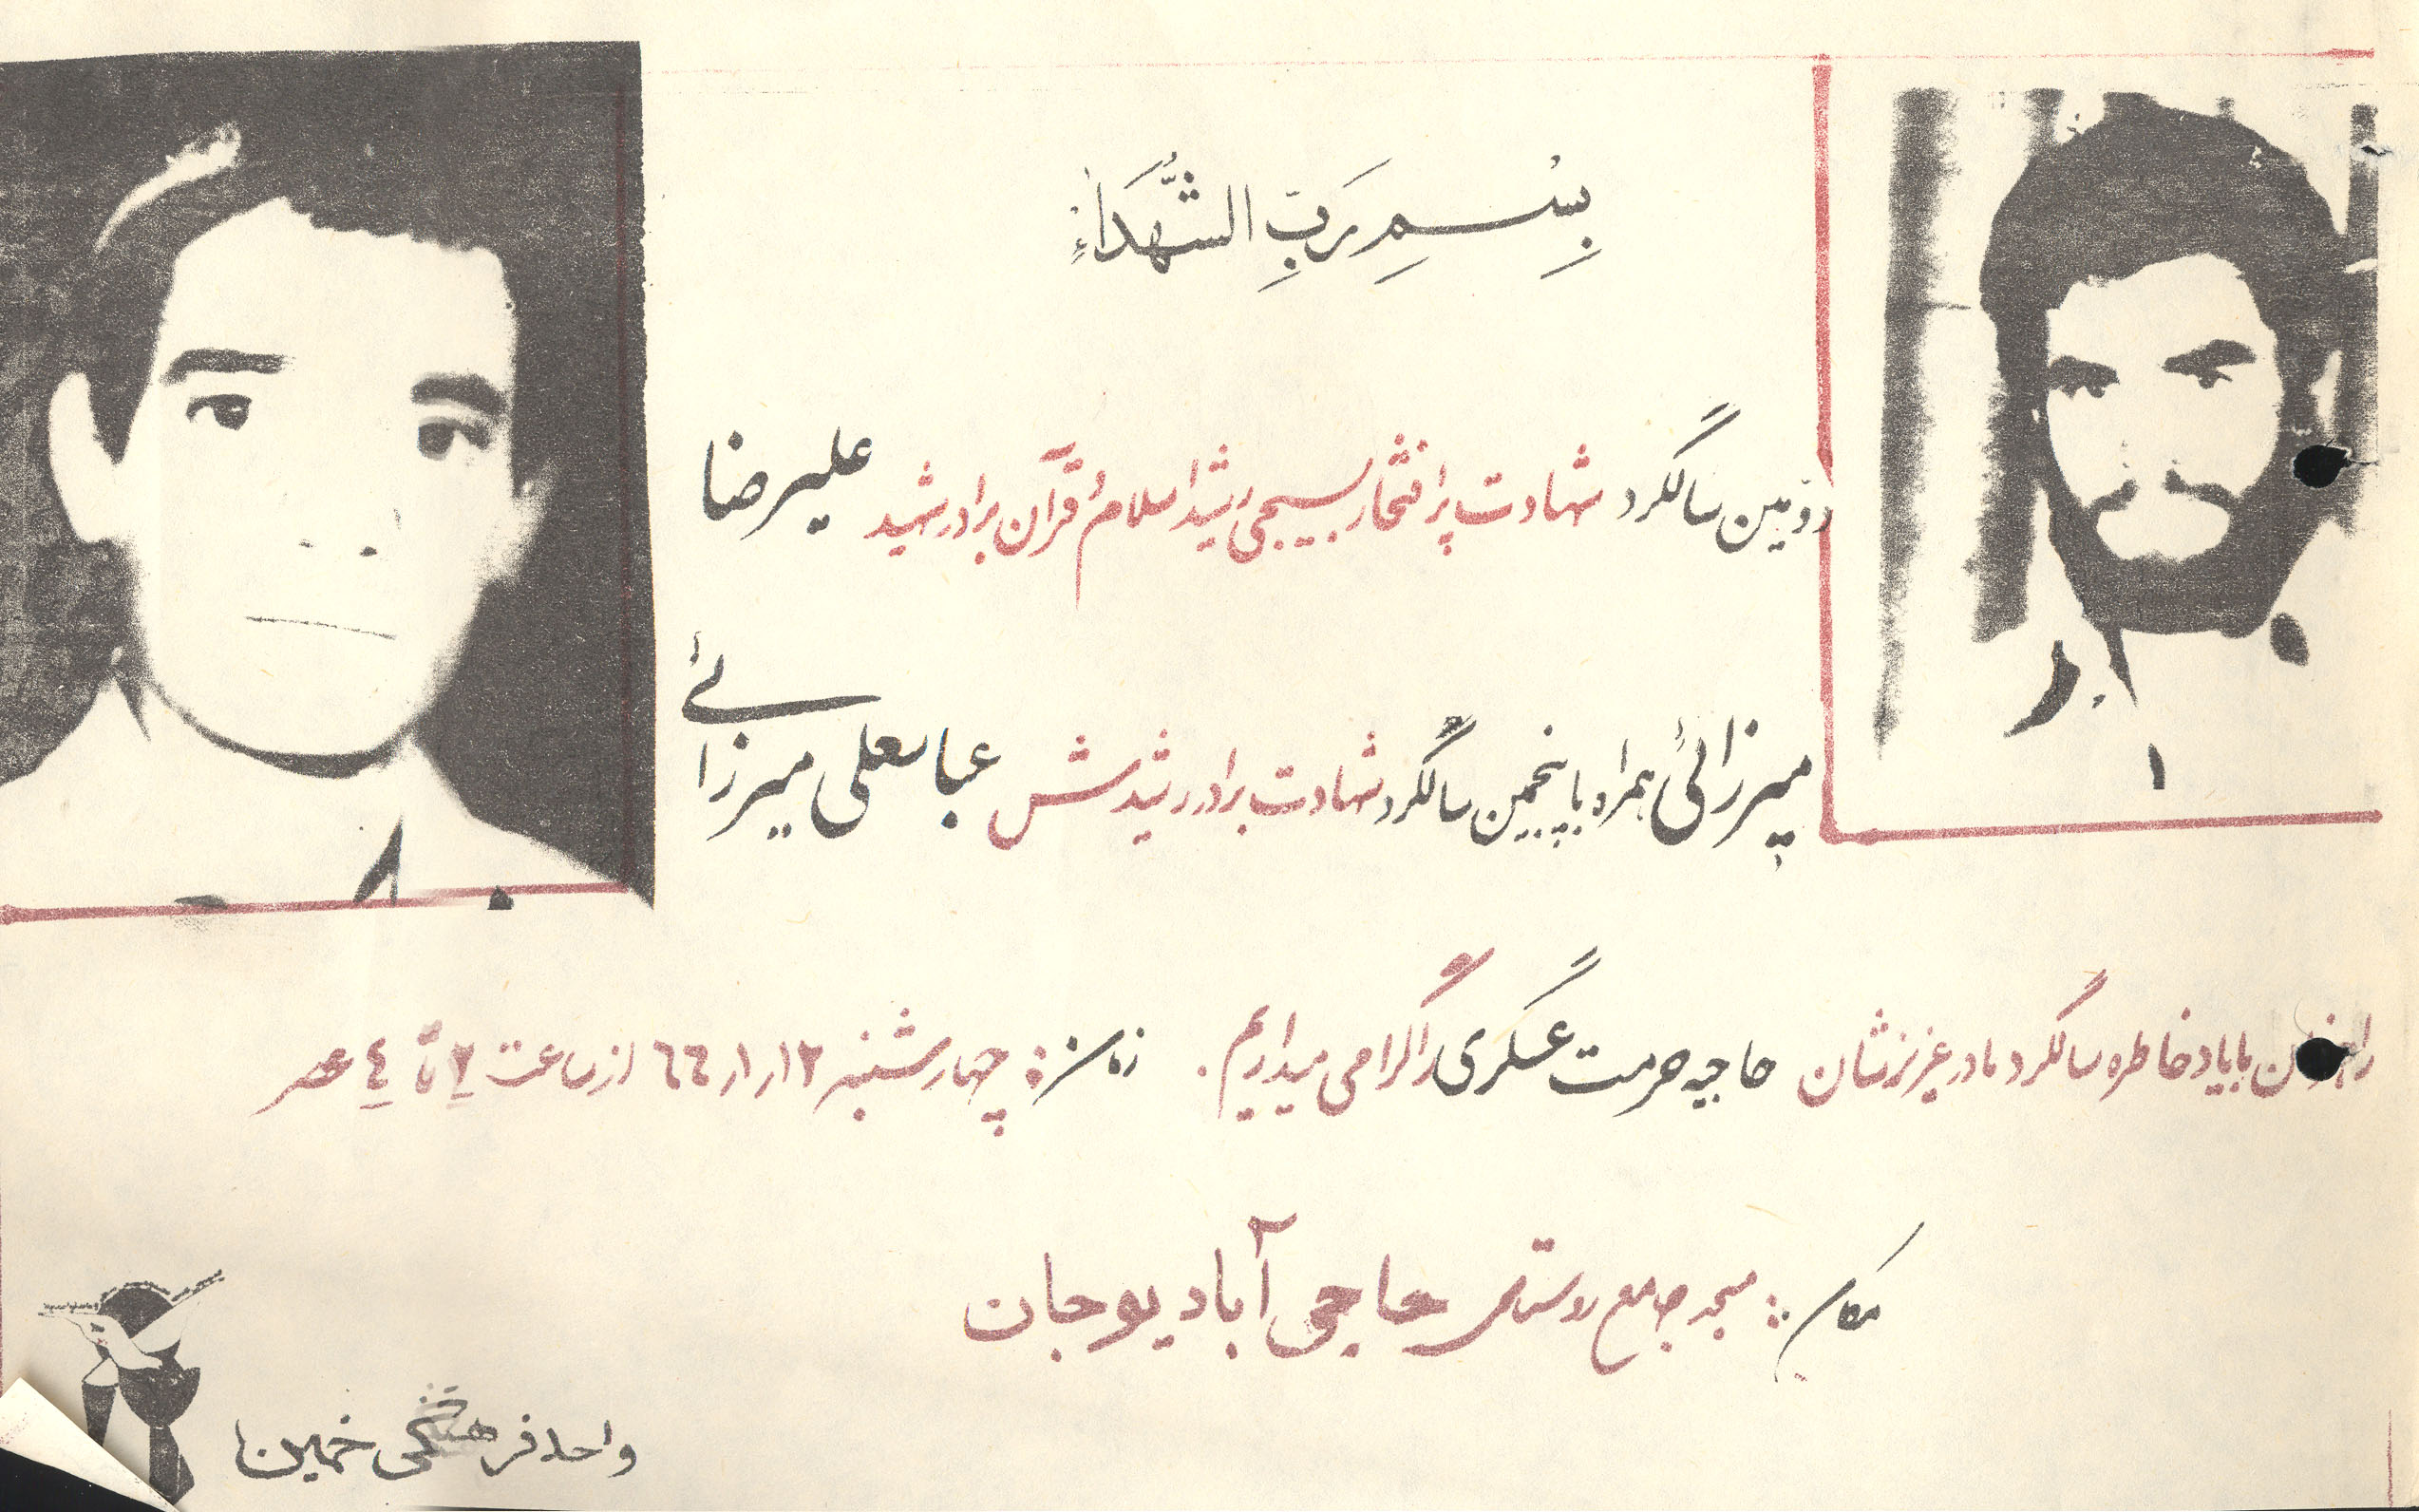 بِسْمِ رَبِّ الشُّهَدَاءِ
دوّمین سالگرد شهادت پرافتخار بسیجی رشید اسلام و قرآن برادر شهید علیرضا
میرزائی همراه با پنجمین سالگرد شهادت برادر رشیدش عباسعلی میرزائی
را با یاد خاطره سالگرد مادر عزیزشان حاجیه حرمت عسگری را گرامی میداریم. زمان: چهارشنبه ۱۲ر۱ر۶۶ از ساعت ۲ تا ۴ عصر
مکان: مسجد جامع روستای حاجی آباد یوجان
واحد فرهنگی خمین
۱